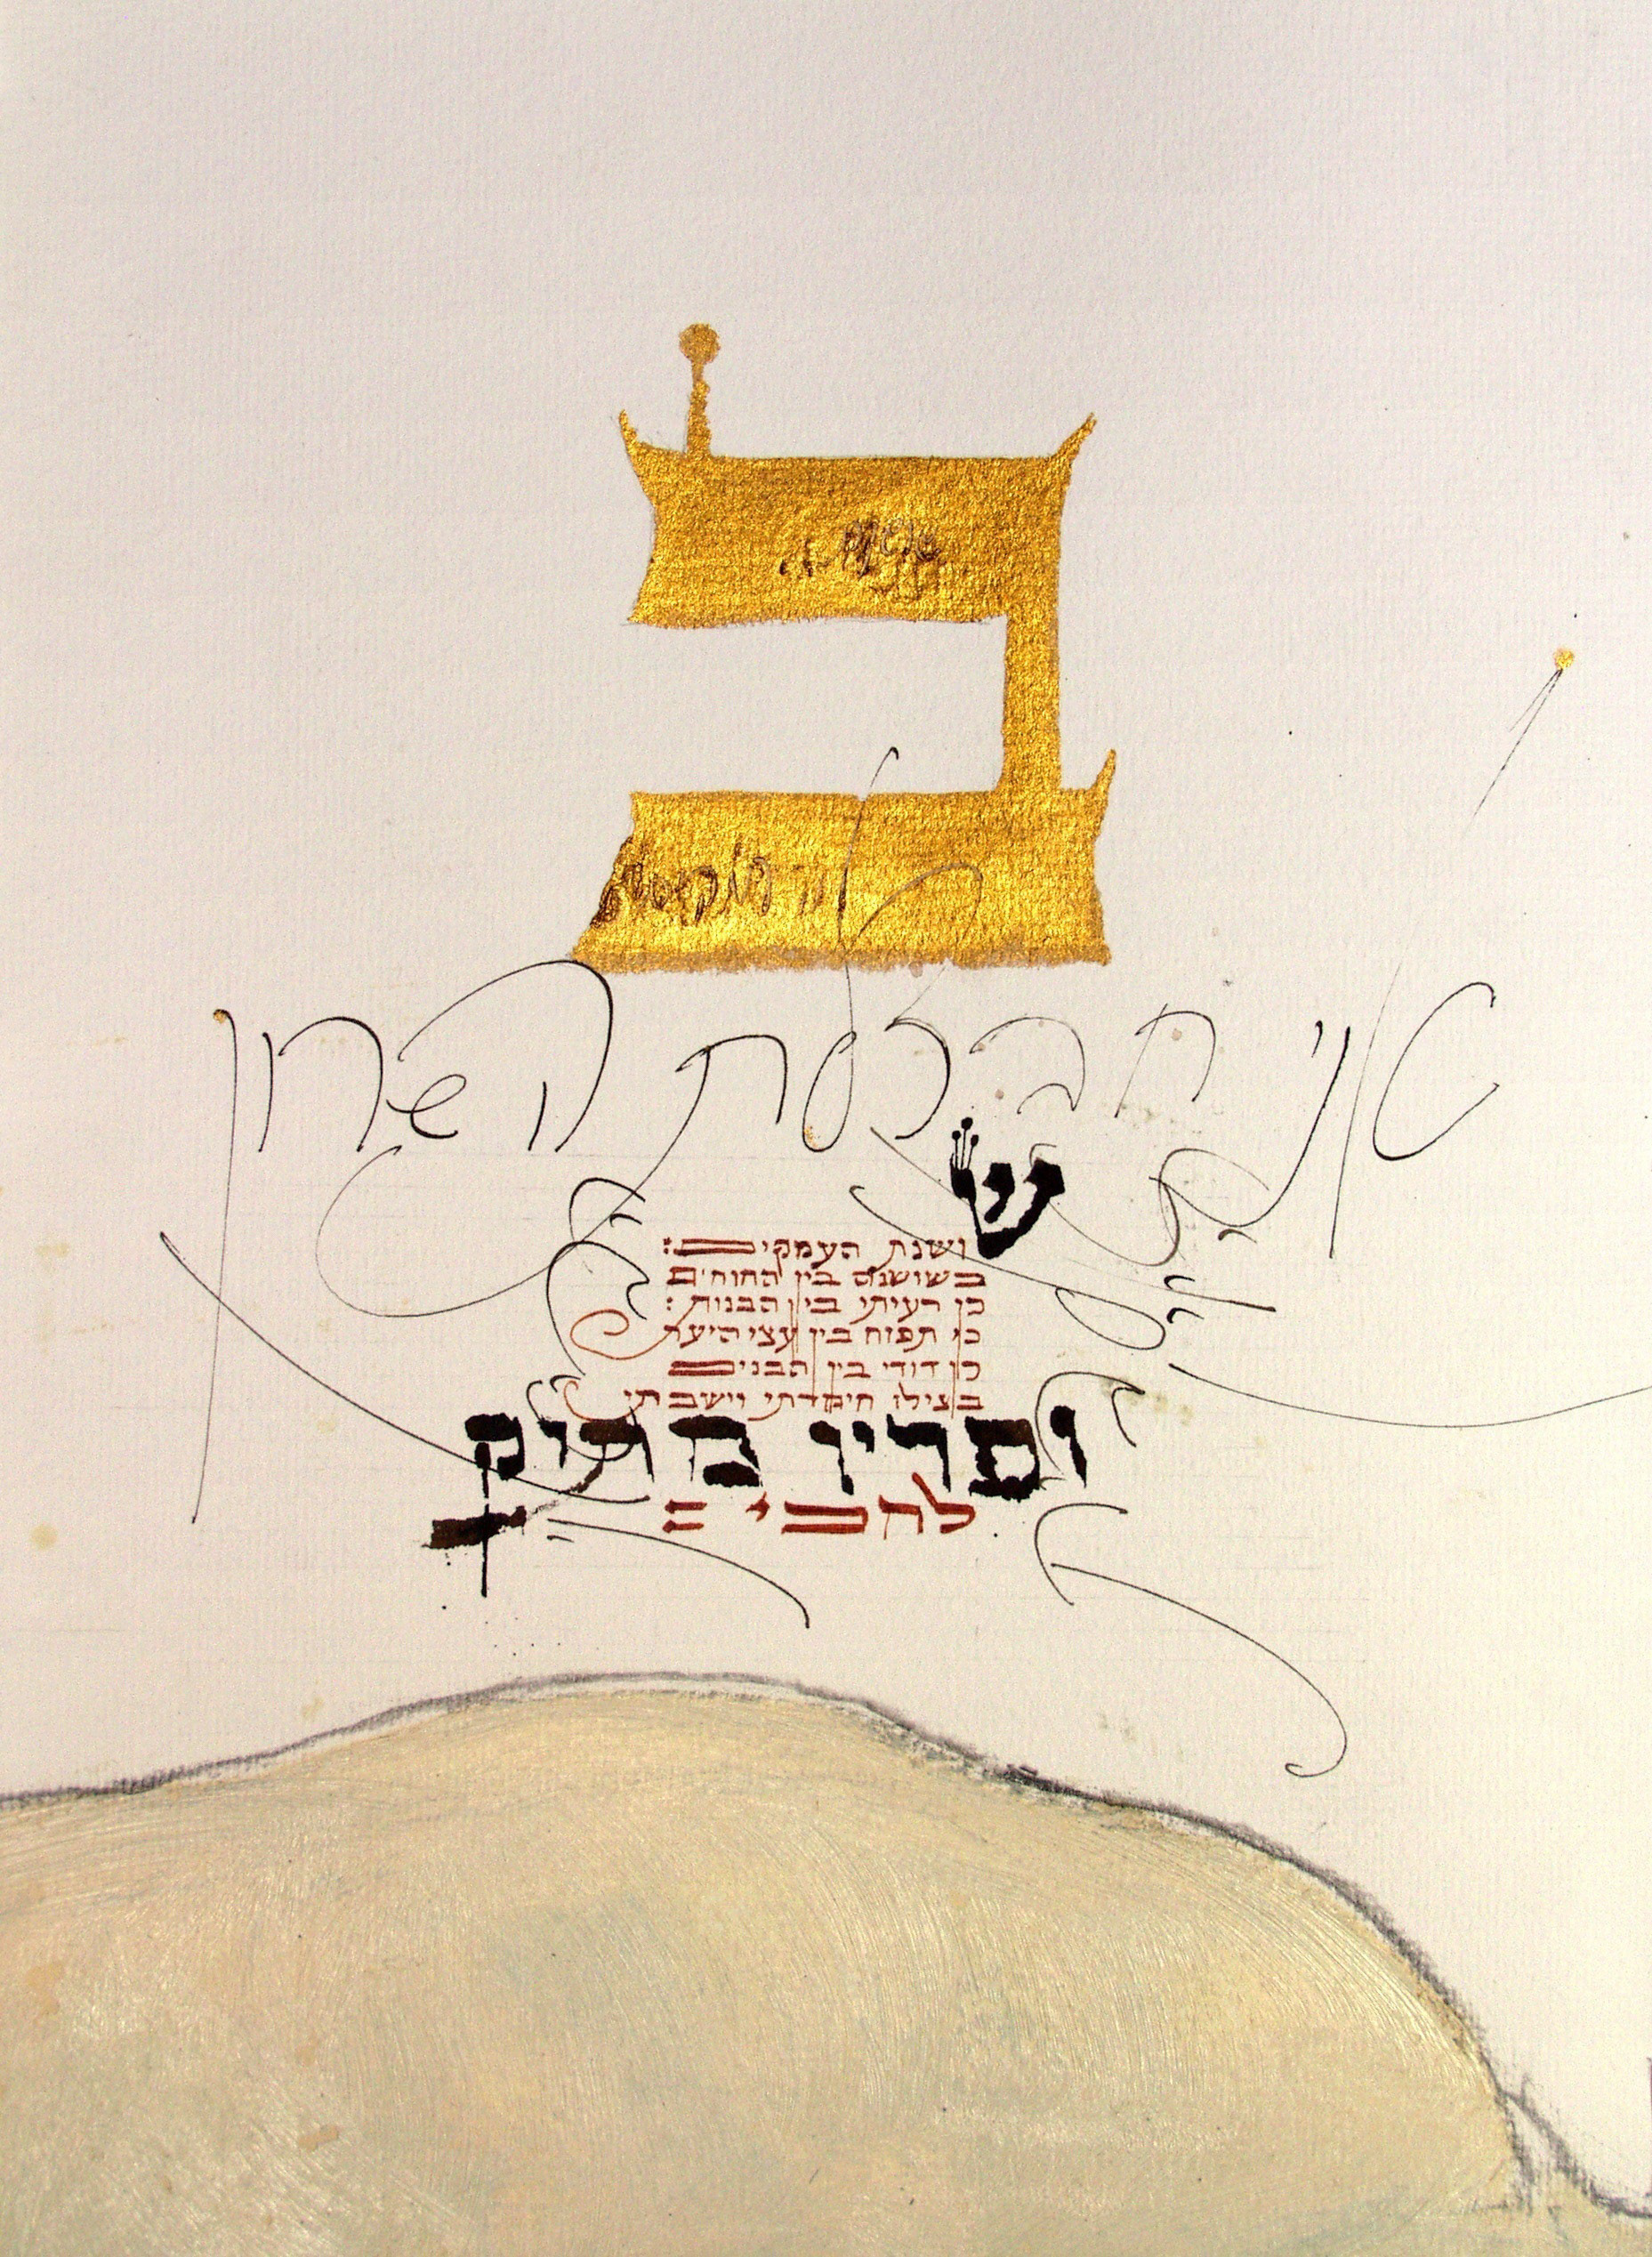 ב
אני חבצלת השרון
שושנת העמקים:
כשושנה בין החוחים
כן רעיתי בין הבנות:
כי תפוח בין עצי היער
כן דודי בין הבנים
בצילו חימדתי וישבתי
ופריו מתוק
לחכי: